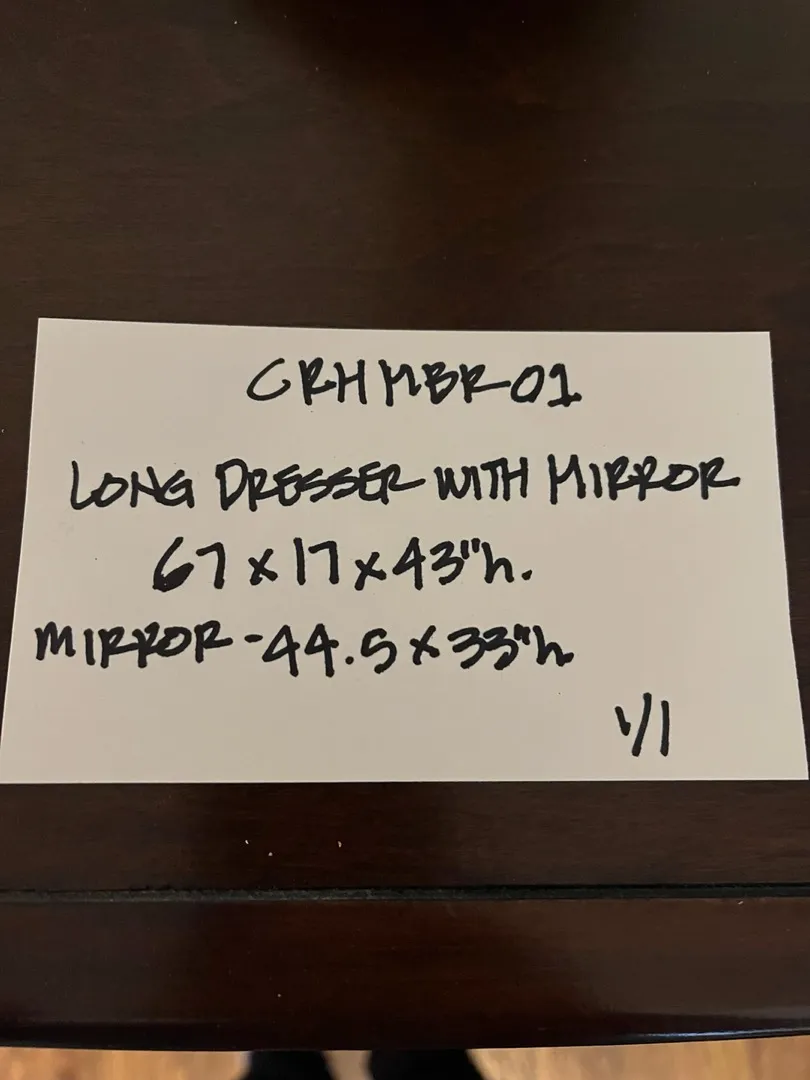 CRHMBR01
LONG DRESSER WITH MIRROR
67 x 17 x 43"h.
MIRROR - 44.5 x 33"h
1/1